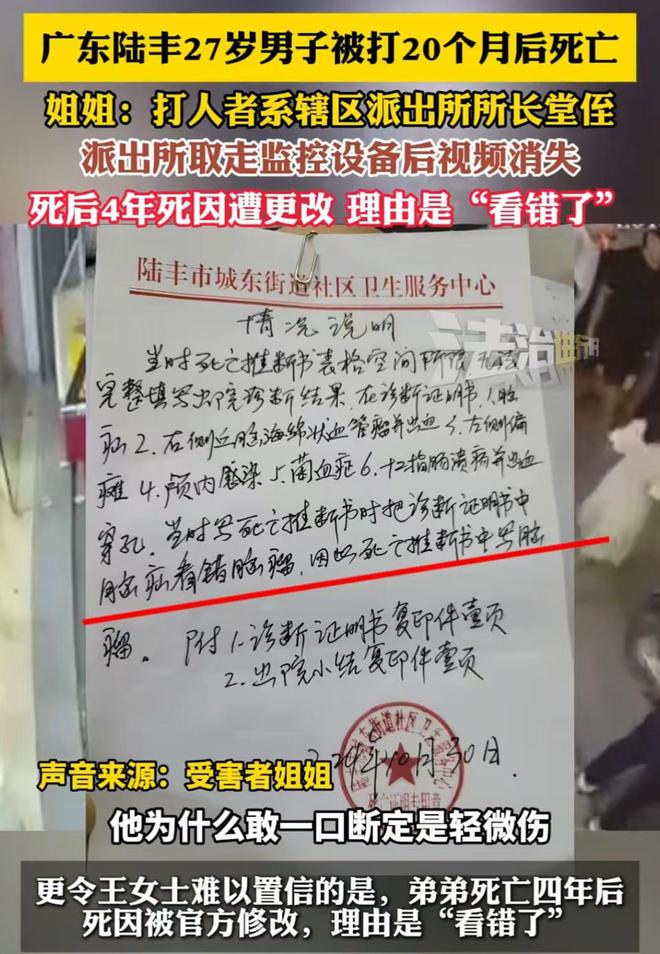 广东陆丰27岁男子被打20个月后死亡
姐姐：打人者系辖区派出所所长堂侄
派出所取走监控设备后视频消失
死后4年死因遭更改 理由是“看错了”
陆丰市城东街道社区卫生服务中心
情况说明
法治
当时死亡推断书表格空间所限无法
完整填写出院诊断结果，在诊断证明书1.脑
疝2.右侧丘脑海绵状血管瘤并出血3.左侧偏
瘫4.颅内感染5.菌血症6.十二指肠溃疡并出血
穿孔，当时写死亡推断书时把诊断证明书中
脑疝看错脑瘤，因此死亡推断书中写脑
瘤。附1.诊断证明书复印件壹页
2.出院小结复印件壹页
10月30日.
街道社区卫生
死亡证明专用章
声音来源：受害者姐姐
他为什么敢一口断定是轻微伤
更令王女士难以置信的是，弟弟死亡四年后
死因被官方修改，理由是“看错了”